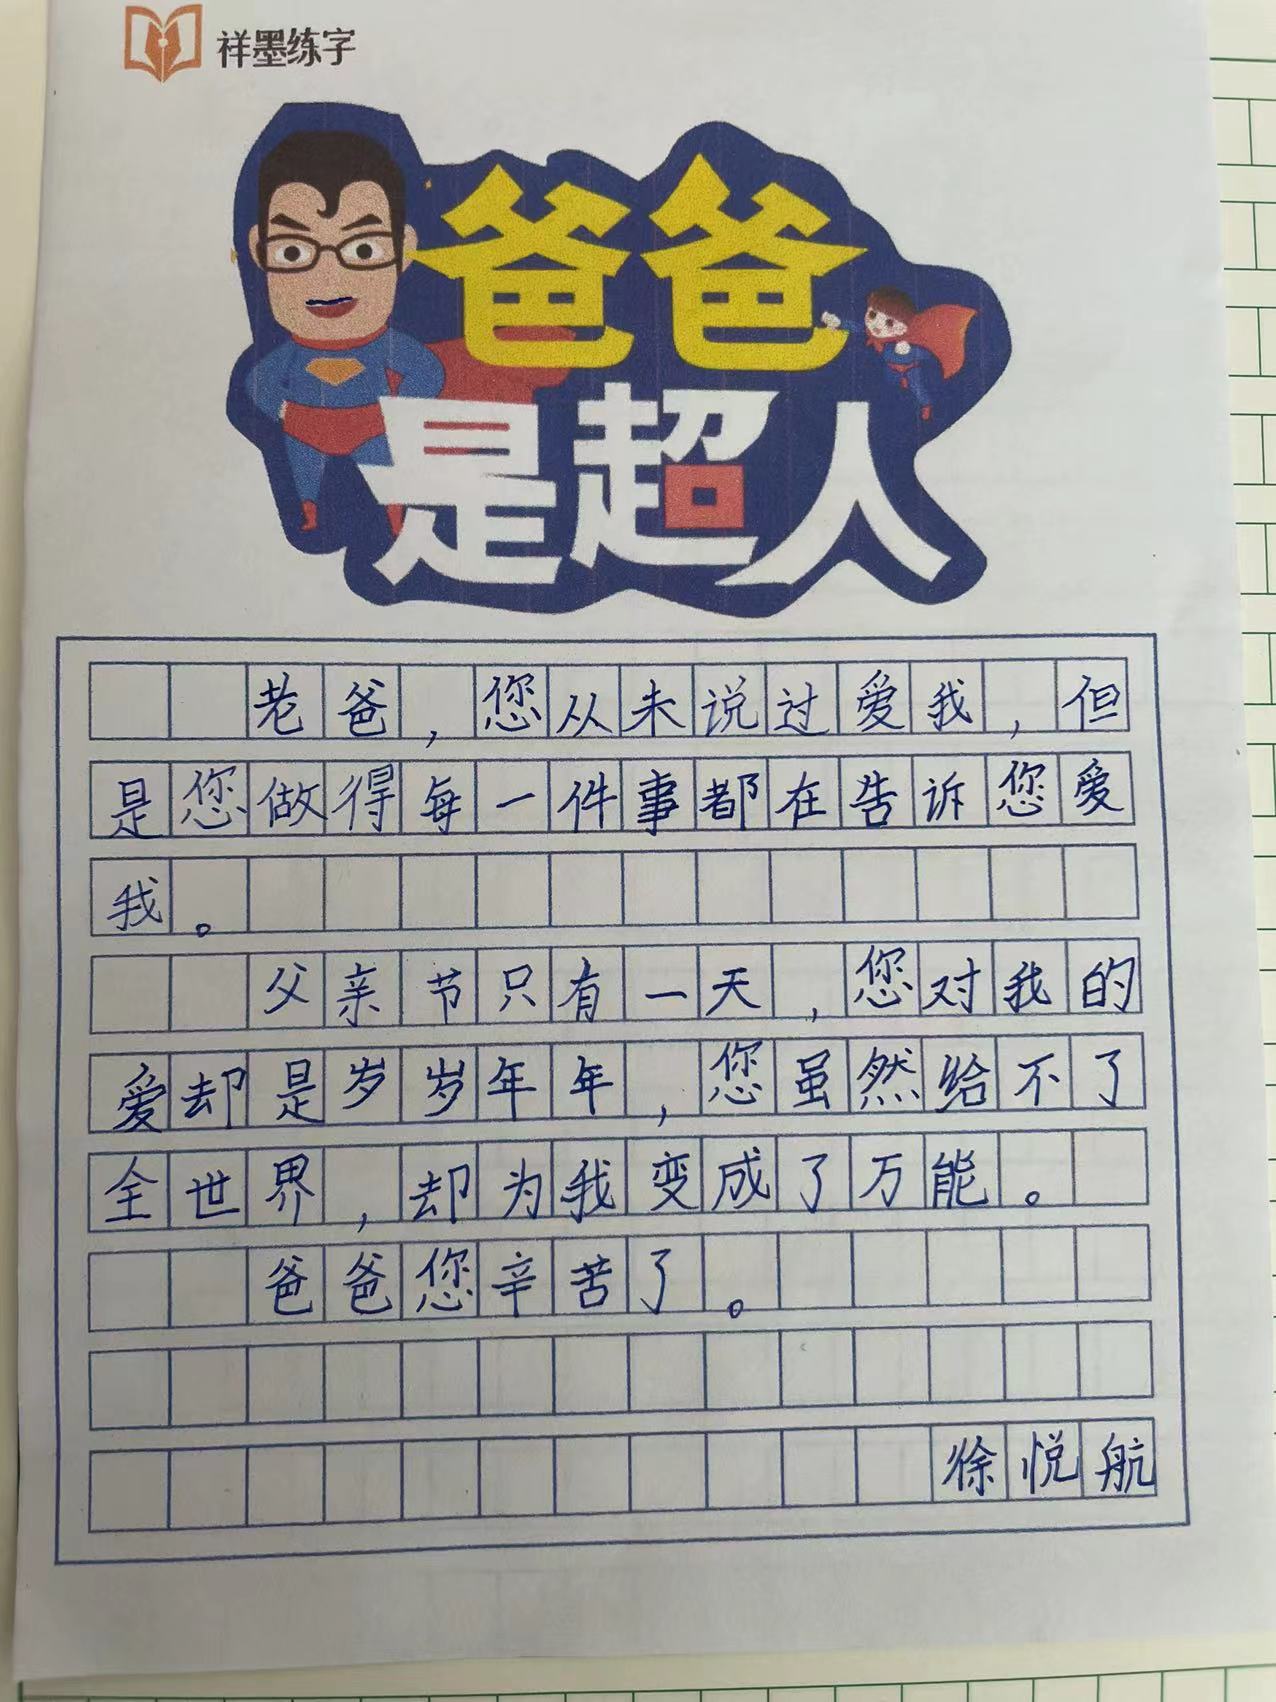 祥墨练字
爸爸
是超人
老爸，您从未说过爱我，但
是您做得每一件事都在告诉您爱
我。
父亲节只有一天，您对我的
爱却是岁岁年年，您虽然给不了
全世界，却为我变成了万能。
爸爸您辛苦了。
徐悦航